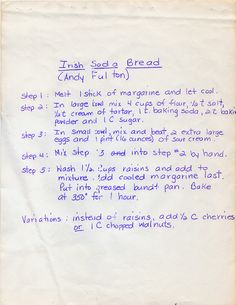 Irish Soda Bread
(Andy Fulton)
Step 1: Melt 1 stick of margarine and let cool.
Step 2: In large bowl mix 4 cups of flour, ½ t salt,
½ t cream of tartar, 1 t. baking soda, 2 t baking
powder and 1 C sugar.
Step 3: In small bowl, mix and beat, 2 extra large
eggs and 1 pint (16 ounces) of sour cream.
Step 4: Mix step #3 and into step #2 by hand.
Step 5: Wash 1½ cups raisins and add to
mixture. Add cooled margarine last.
Put into greased bundt pan. Bake
at 350° for 1 hour.
Variations: instead of raisins, add ½ C cherries
or 1 C chopped walnuts.